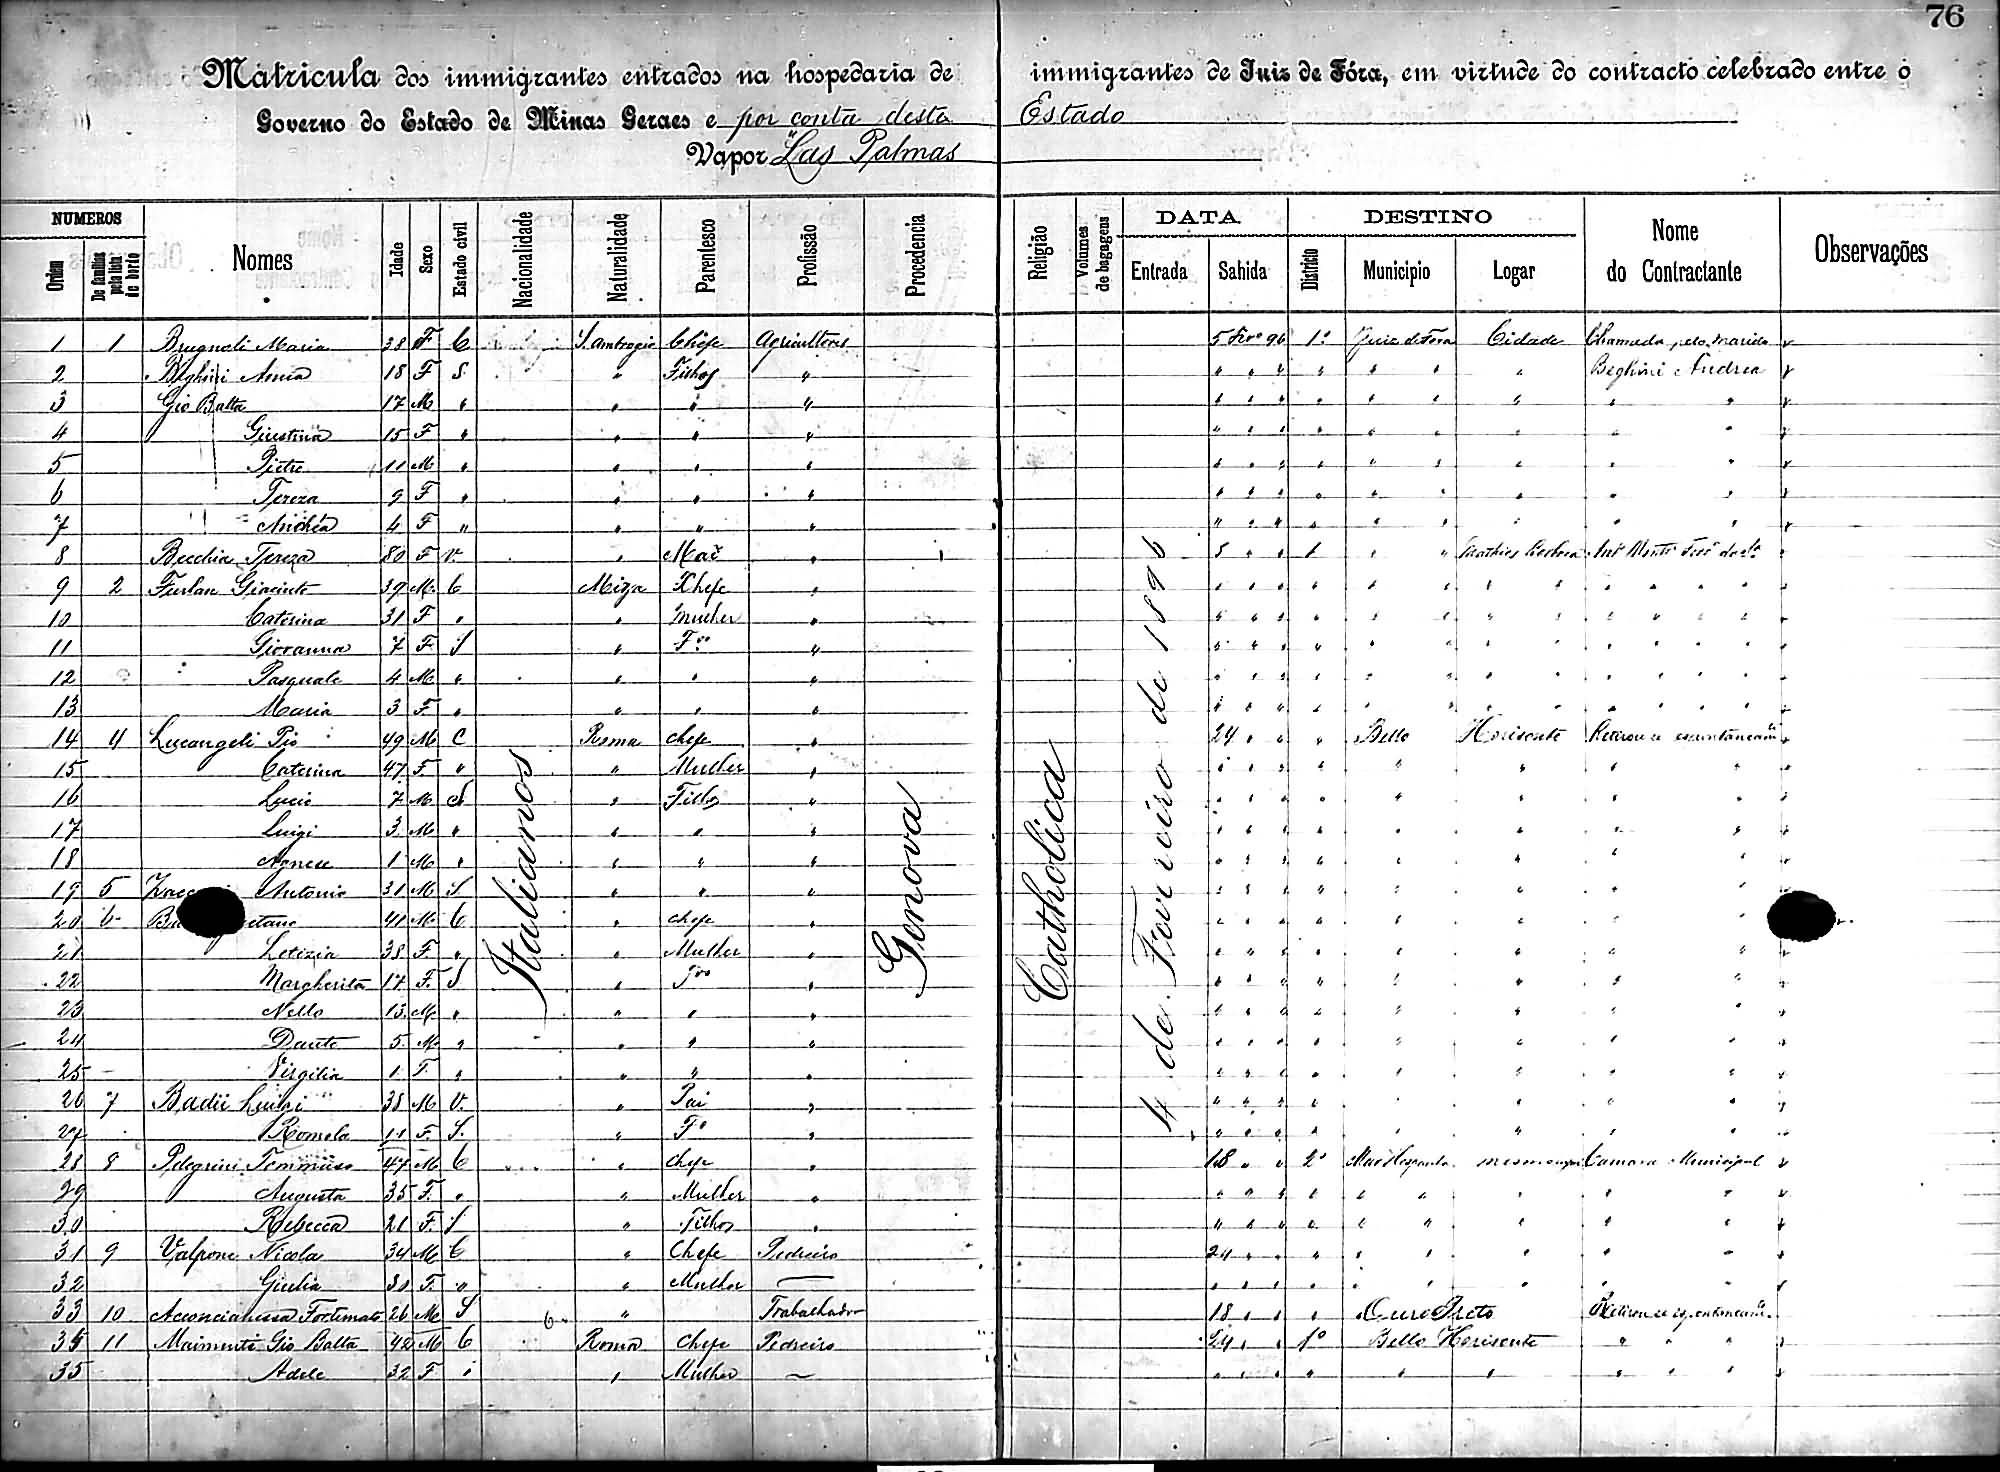 76
Matricula dos immigrantes entrados na hospedaria de immigrantes de Juiz de Fóra, em virtude do contracto celebrado entre o
Governo do Estado de Minas Geraes e por conta deste Estado
Vapor "Las Palmas
NUMEROS Nomes Idade Sexo Estado civil Nacionalidade Naturalidade Parentesco Profissão Procedencia Religião Volumes de bagagens DATA DESTINO Nome do Contractante Observações
Ordem De familias pela lista de bordo Entrada Sahida Districto Municipio Logar
Italianos
Genova
Catholica
4 de Fevreiro de 1896
1 1 Brugnoli Maria 38 F C S. ambrogio Chefe Agricultores 5 Fevº 96 1º Juiz de Fora Cidade Chamada pelo marido "
2 Beghini Anna 18 F S. " Filhos " " " " " " " " Beghini Andrea "
3 Gio Batta 17 M " " " " " " " " " " " " " "
4 Giustina 15 F " " " " " " " " " " " " " "
5 Pietro 11 M " " " " " " " " " " " " " "
6 Tereza 9 F " " " " " " " " " " " " " "
7 Andréa 4 F " " " " " " " " " " " " " "
8 Becchia Tereza 80 F V. " Mãe " 5 " " 1 " "
9 2 Furlan Giacinto 39 M. C Chefe " " " " " " " " " " " " " "
10 Caterina 31 F " " Mulher " " " " " " " " " " " " " "
11 Giovanna 7 F. S " Fºº " " " " " " " " " " " " " "
12 Pasquale 4 M " " " " " " " " " " " " " " " " "
13 Maria 3 F. " " " " " " " " " " " " " " " " "
14 4 Lucangeli Pio 49 M C Roma Chefe " 24 " " " Bello Horisonte Retirou-se "
15 Caterina 47 F. " " Mulher " " " " " " " " " "
16 Lucio 7 M S " Filhos " " " " " " " " " "
17 Luigi 3 M " " " " " " " " " " " " "
18 Agnese 1 M " " " " " " " " " " " " "
19 5 Antonio 31 M S " " " " " " " " " " " "
20 6 41 M C " Chefe " " " " " " " "
21 Letizia 38 F " " Mulher " " " " " " " " "
22 Margherita 17 F. S " Fºº " " " " " " " " "
23 Nello 13 M " " " " " " " " " " " "
24 Dante 5 M " " " " " " " " " " " " "
25 Virgilia 1 F. " " " " " " " " " " " " "
26 7 Badii Luigi 38 M V. " Pai " " " " " " " " " "
27 Romola 11 F. S. " Fº " " " " " " " " " "
28 8 Pelegrini Tommaso 47 M C " Chefe " 18 " " 2º Mar Hespanha Camara Municipal "
29 Augusta 35 F. " " Mulher " " " " " " " " " " "
30 Rebecca 21 F. S " Filhos " " " " " " " " " " "
31 9 Valpone Nicola 34 M C " Chefe Pedreiro 24 " " " " " " " " "
32 Giulia 30 F. " " Mulher — " " " " " " " " "
33 10 Fortunato 26 M S " Trabalhador 18 " " " Ouro Preto Retirou-se
34 11 Maimenti Gio Batta 42 M C Roma Chefe Pedreiro 24 " " 1º Bello Horisonte " " " "
35 Adele 32 F " " Mulher — " " " " " " " " " "